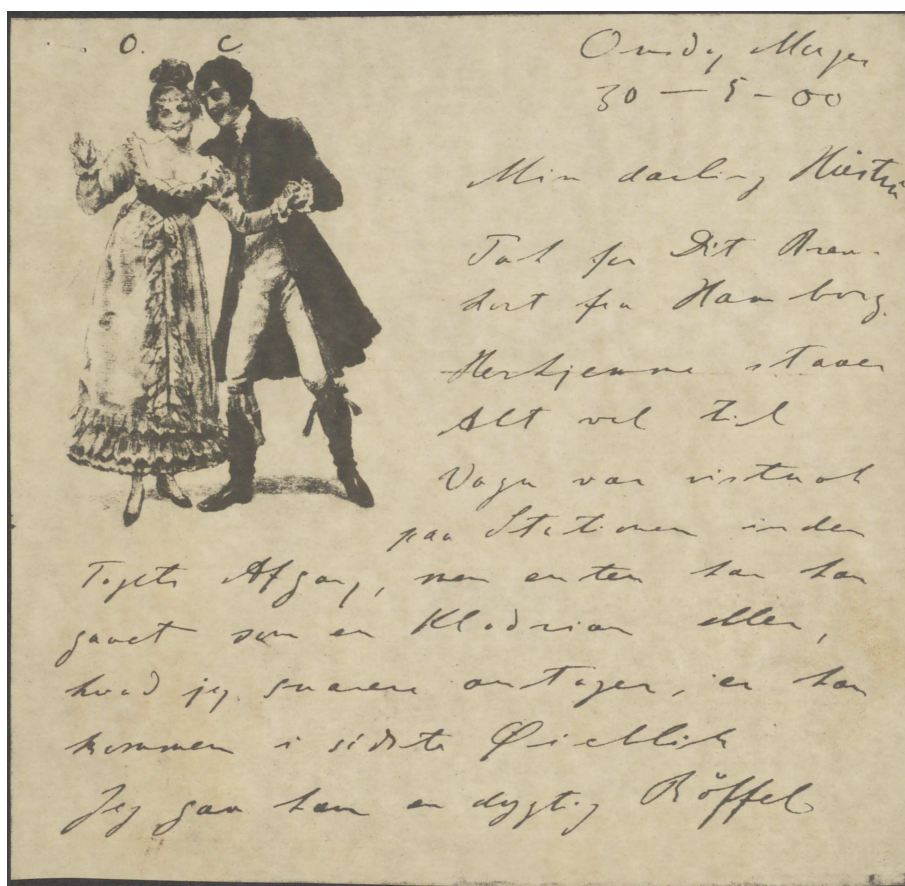 O. C.
Onsdag Morgen
30 – 5 – 00
Min darling
Tak for Dit Brev-
kort fra Hamborg.
Herhjemme staaer
Alt vel til
Vagn var vistnok
paa Stationen inden
Togets Afgang, men enten har han
gaaet som en Klodrian eller,
hvad jeg snarere antager, er han
kommen i sidste Øieblik
Jeg gav ham en dygtig Röffel